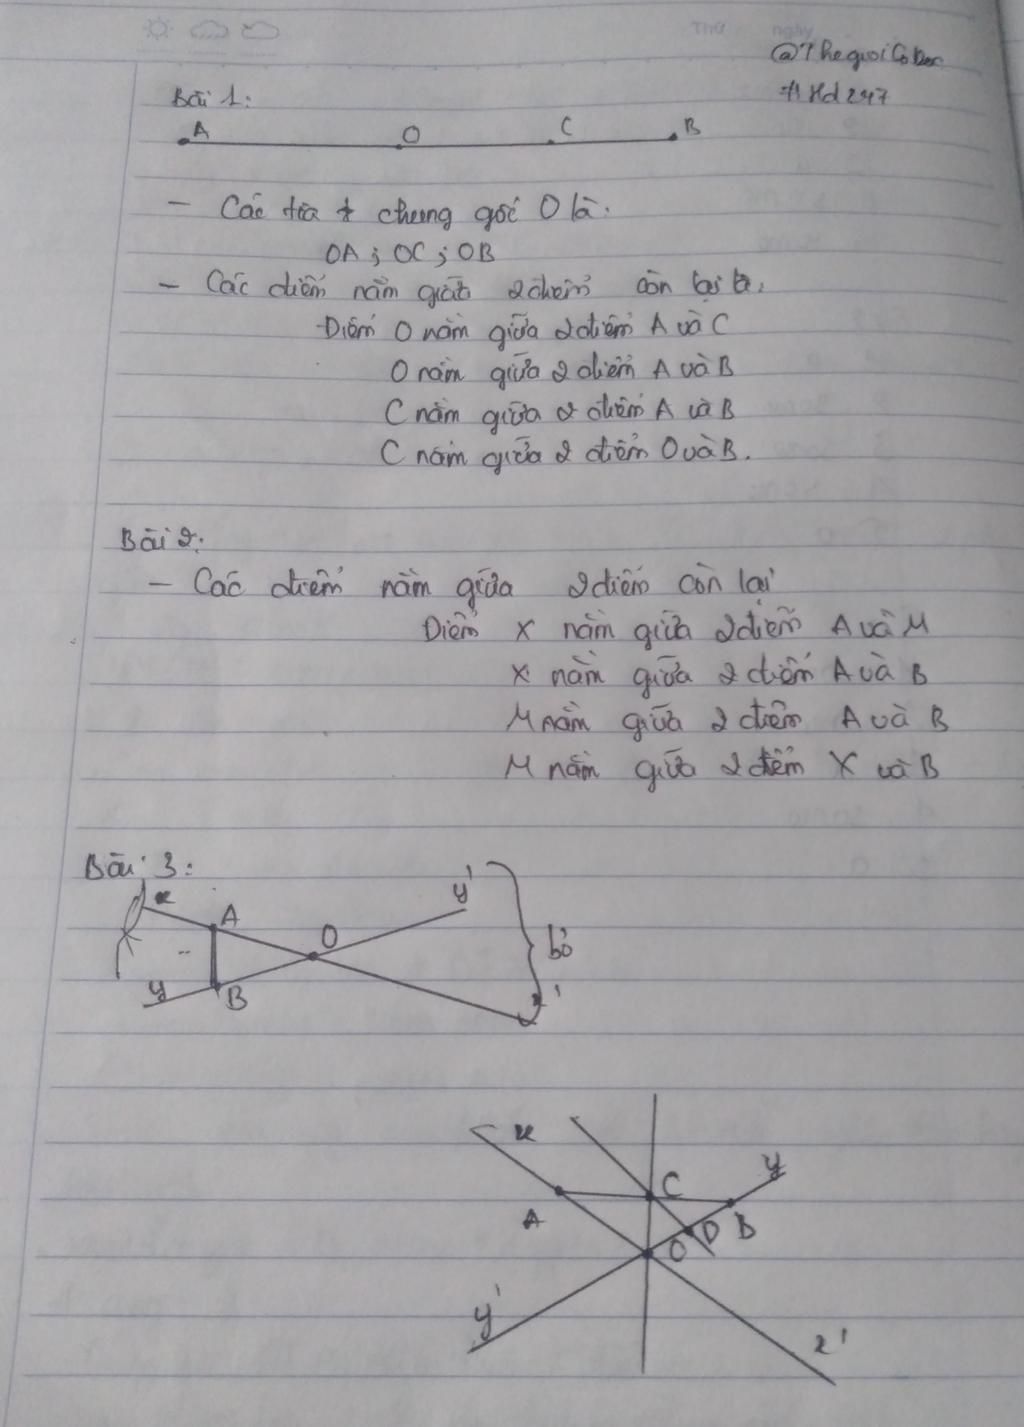 Thứ ngày
@ThegioiCoDoc
#Hd247
Bài 1:
A O C B
- Các tia chung gốc O là:
OA ; OC ; OB
- Các điểm nằm giữa 2 điểm còn lại là:
Điểm O nằm giữa 2 điểm A và C
O nằm giữa 2 điểm A và B
C nằm giữa 2 điểm A và B
C nằm giữa 2 điểm O và B.
Bài 2:
- Các điểm nằm giữa 2 điểm còn lại
Điểm X nằm giữa 2 điểm A và M
X nằm giữa 2 điểm A và B
M nằm giữa 2 điểm A và B
M nằm giữa 2 điểm X và B
Bài 3:
x A O y'
bỏ
y B x'
x y
C
A D B
O
y' x'